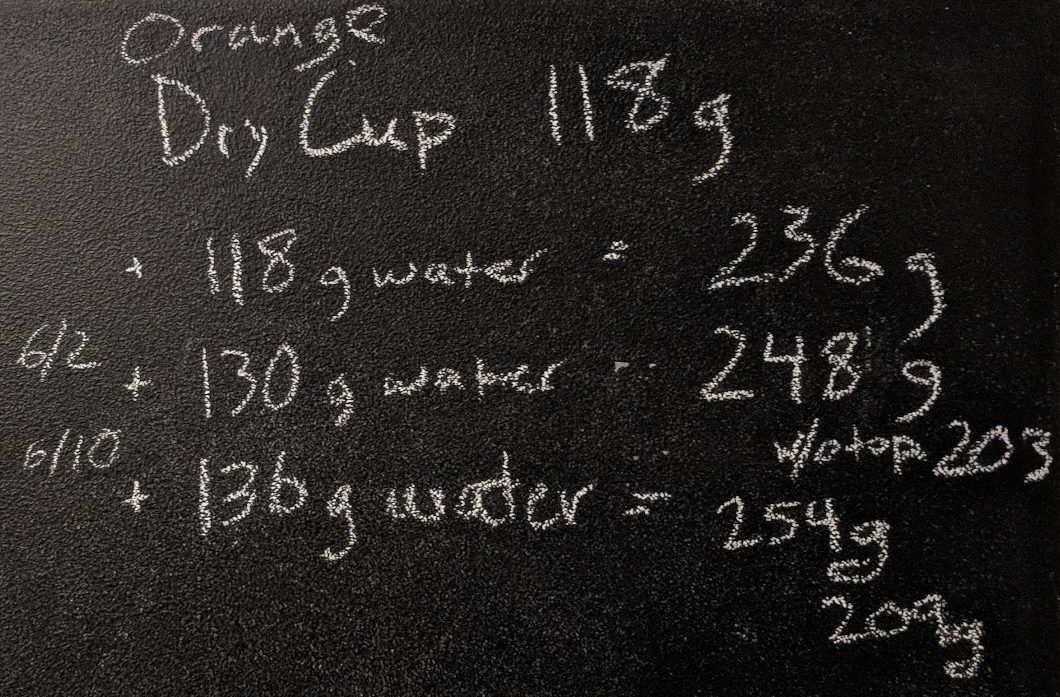 Orange
Dry Cup 118 g
+ 118 g water = 236 g
6/2 + 130 g water = 248 g
w/o top 203
6/10 + 136 g water = 254 g
209g